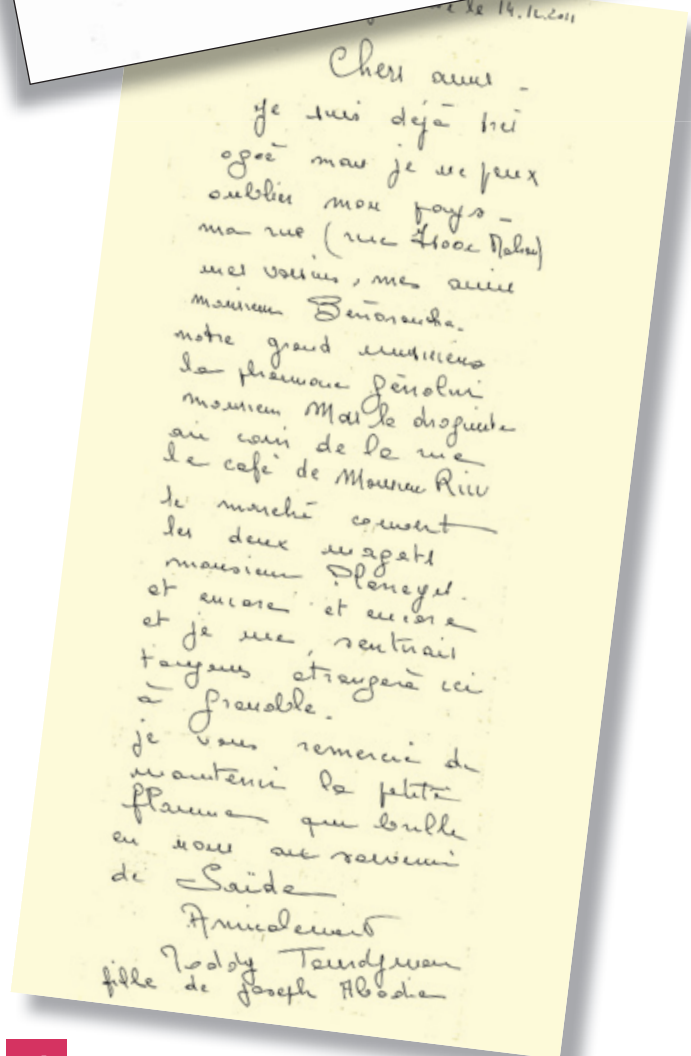 le 14.12.2011
Chers amis -
je suis déjà très
agée mais je ne peux
oublier mon pays -
ma rue (rue Isaac)
mes voisins, mes amis
monsieur
notre grand musicien
la pharmacie
monsieur le droguiste
au coin de la rue
le café de Monsieur
le marché couvert
les deux magots
monsieur
et encore et encore
et je me sentirais
toujours étrangère ici
à Grenoble.
je vous remercie de
maintenir la petite
flamme qui brille
en nous au souvenir
de Saïda
Amicalement
fille de Joseph Abadie